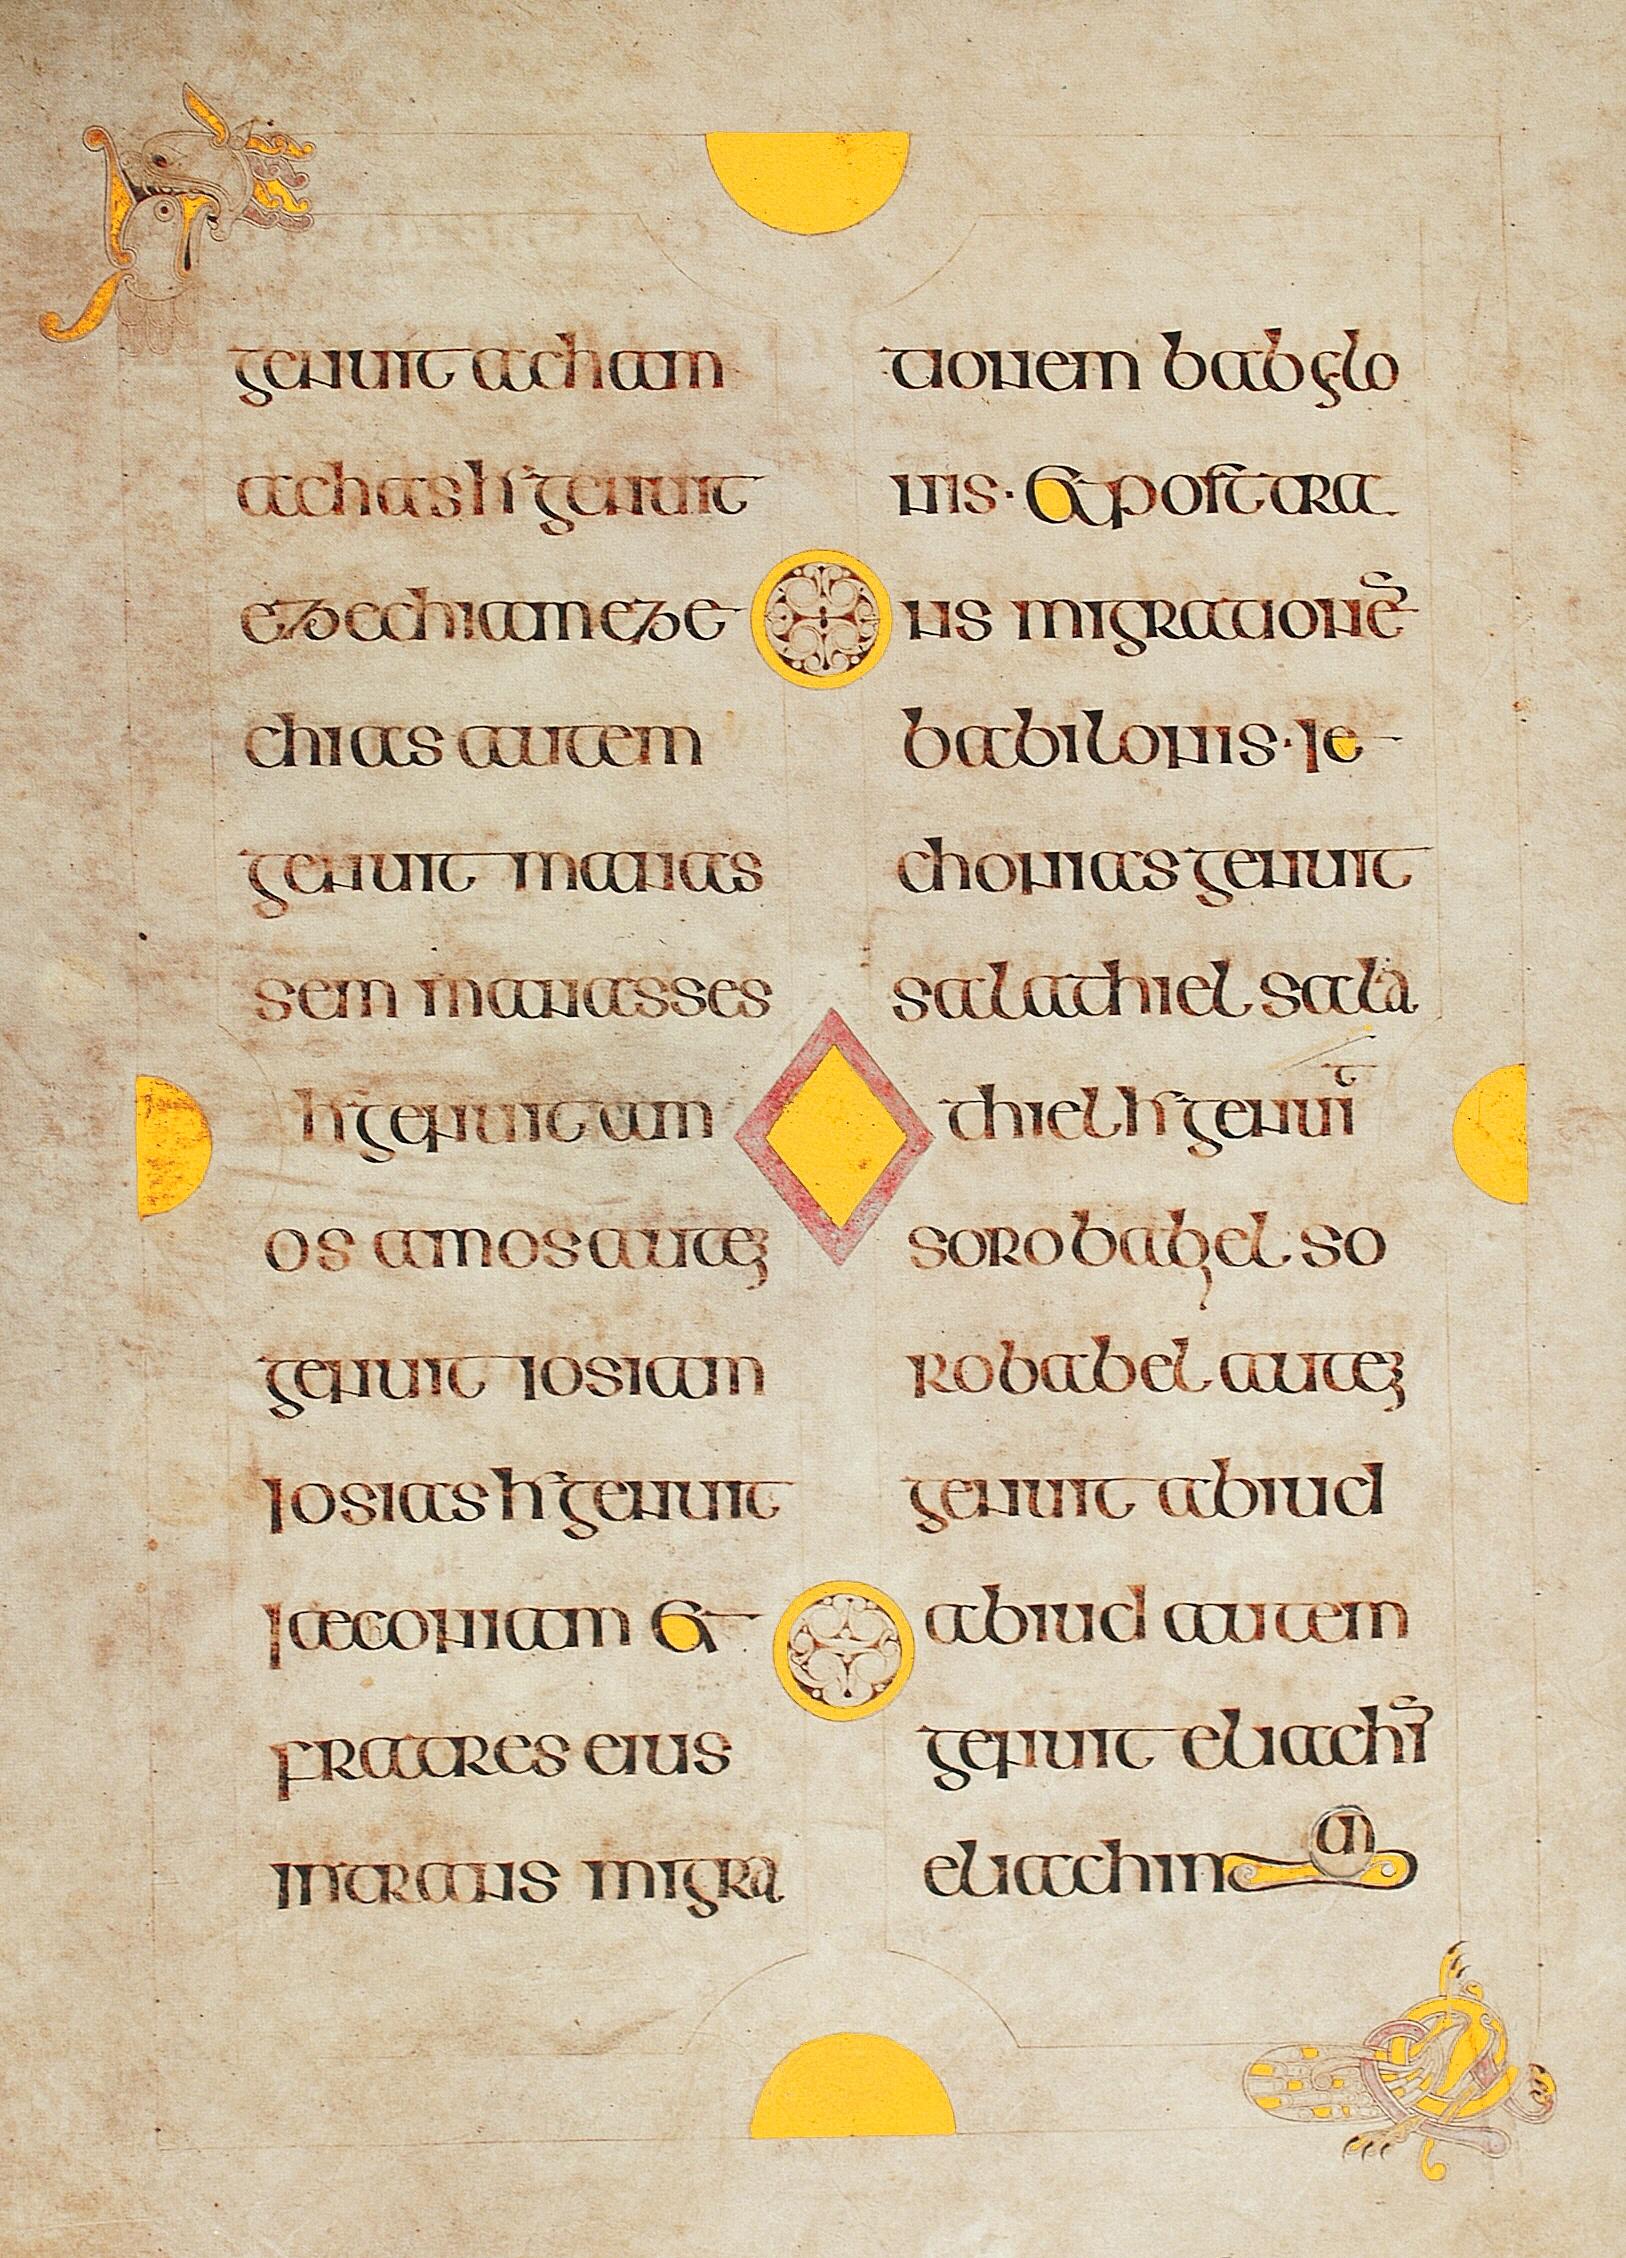 genuit acham
achas hr genuit
ezechiam eze
chias autem
genuit manas
sem manasses
hr genuit am
os amos autez
genuit iosiam
iosias hr genuit
iæconiam et
fratres eius
intranis migra
tionem babylo
nis · et post tra
nis migrationē
babilonis · ie
chonias genuit
salathiel sala
thiel hr genuit
sorobabel so
robabel autez
genuit abiud
abiud autem
genuit eliachī
eliachim a